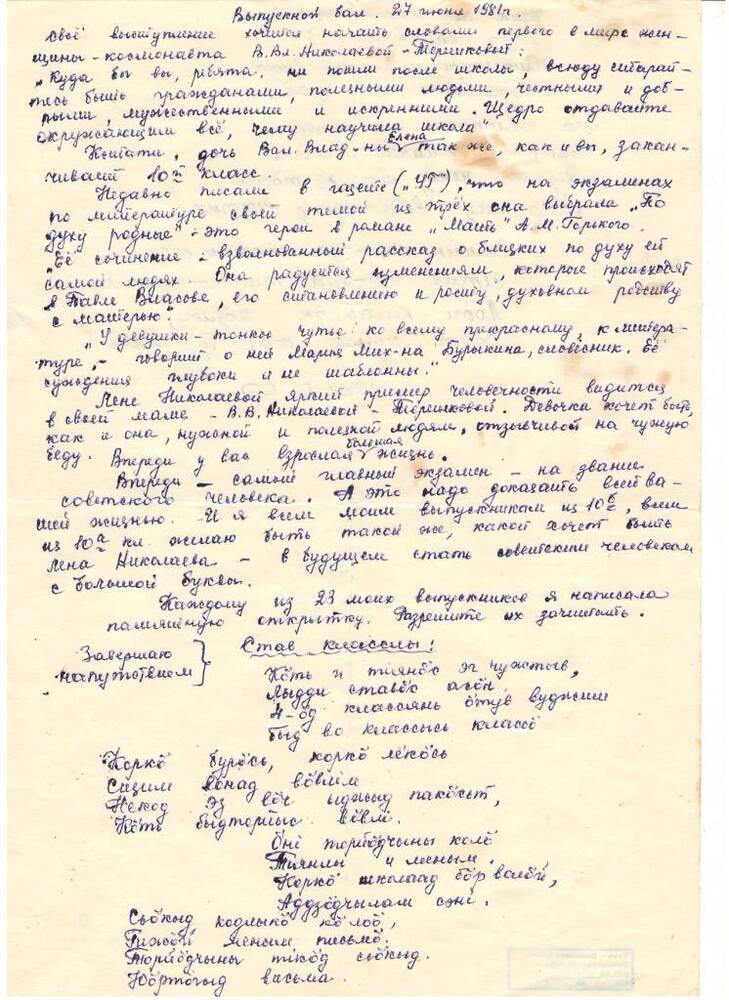 Выпускной бал. 27 июня 1981г.
Своё выступление хочется начать словами первого в мире жен-
щины-космонавта В.Вл. Николаевой-Терешковой:
„Куда бы вы, ребята, ни пошли после школы, всюду старай-
тесь быть гражданами, полезными людьми, честными и доб-
рыми, мужественными и искренними. Щедро отдавайте
окружающим всё, чему научила школа"
Кстати, дочь Вал. Влад-ны Елена так же, как и вы, закан-
чивает 10й класс.
Недавно писали в газете („УГ"), что на экзаменах
по литературе своей темой из трёх она выбрала „По
духу родные" - это герои в романе „Мать" А.М. Горького.
„Её сочинение - взволнованный рассказ о близких по духу ей
самой людях. Она радуется изменениям, которые происходят
в Павле Власове, его становлению и росту, духовном родству
с матерью."
„У девушки - тонкое чутьё ко всему прекрасному, к литера-
туре, - говорит о ней Мария Мих-на Бурыкина, словесник. Её
суждения глубоки и не шаблонны."
Лене Николаевой яркий пример человечности видится
в своей маме - В.В. Николаевой-Терешковой. Девочка хочет быть,
как и она, нужной и полезной людям, отзывчивой на чужую
беду. Впереди у вас взрослая большая жизнь.
Впереди - самый главный экзамен - на звание
советского человека. А это надо доказать всей ва-
шей жизнью. И я всем моим выпускникам из 10б, всем
из 10а кл. желаю быть такой же, какой хочет быть
Лена Николаева - в будущем стать советским человеком
с большой буквы.
Каждому из 23 моих выпускников я написала
памятную открытку. Разрешите их зачитать.
Завершаю
напутствием
Став класслы:
Кӧть и тіянӧс эг чужтыв,
Лыдди ставӧс асӧн,
4-ӧд классянь ӧтув вуджим
Быд во классысь классӧ
Коркӧ бурӧсь, коркӧ лёкӧсь
Сизим вонад вӧвлім
Некод эз вӧч ыджыд пакӧсьт,
Кӧть быдторйыс вӧвлі.
Ӧні торйӧдчыны колӧ
Тіянлы и меным.
Коркӧ школаад бӧр волӧй,
Аддзӧдчылам сэні.
Сьӧкыд кодлыкӧ кӧ лоӧ,
Гижӧй меным письмӧ.
Торйӧдчыны тікӧд сьӧкыд.
Юӧртӧгыд висьма.